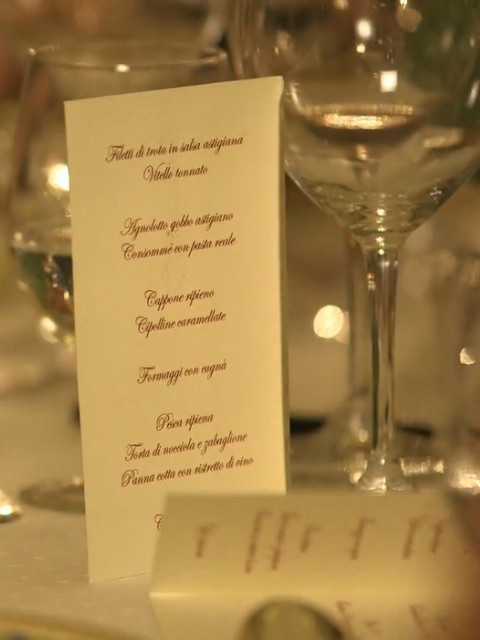 Filetti di trota in salsa astigiana
Vitello tonnato
Agnolotto gobbo astigiano
Consommè con pasta reale
Cappone ripieno
Cipolline caramellate
Formaggi con cugnà
Pesca ripiena
Torta di nocciola e zabaglione
Panna cotta con ristretto di vino